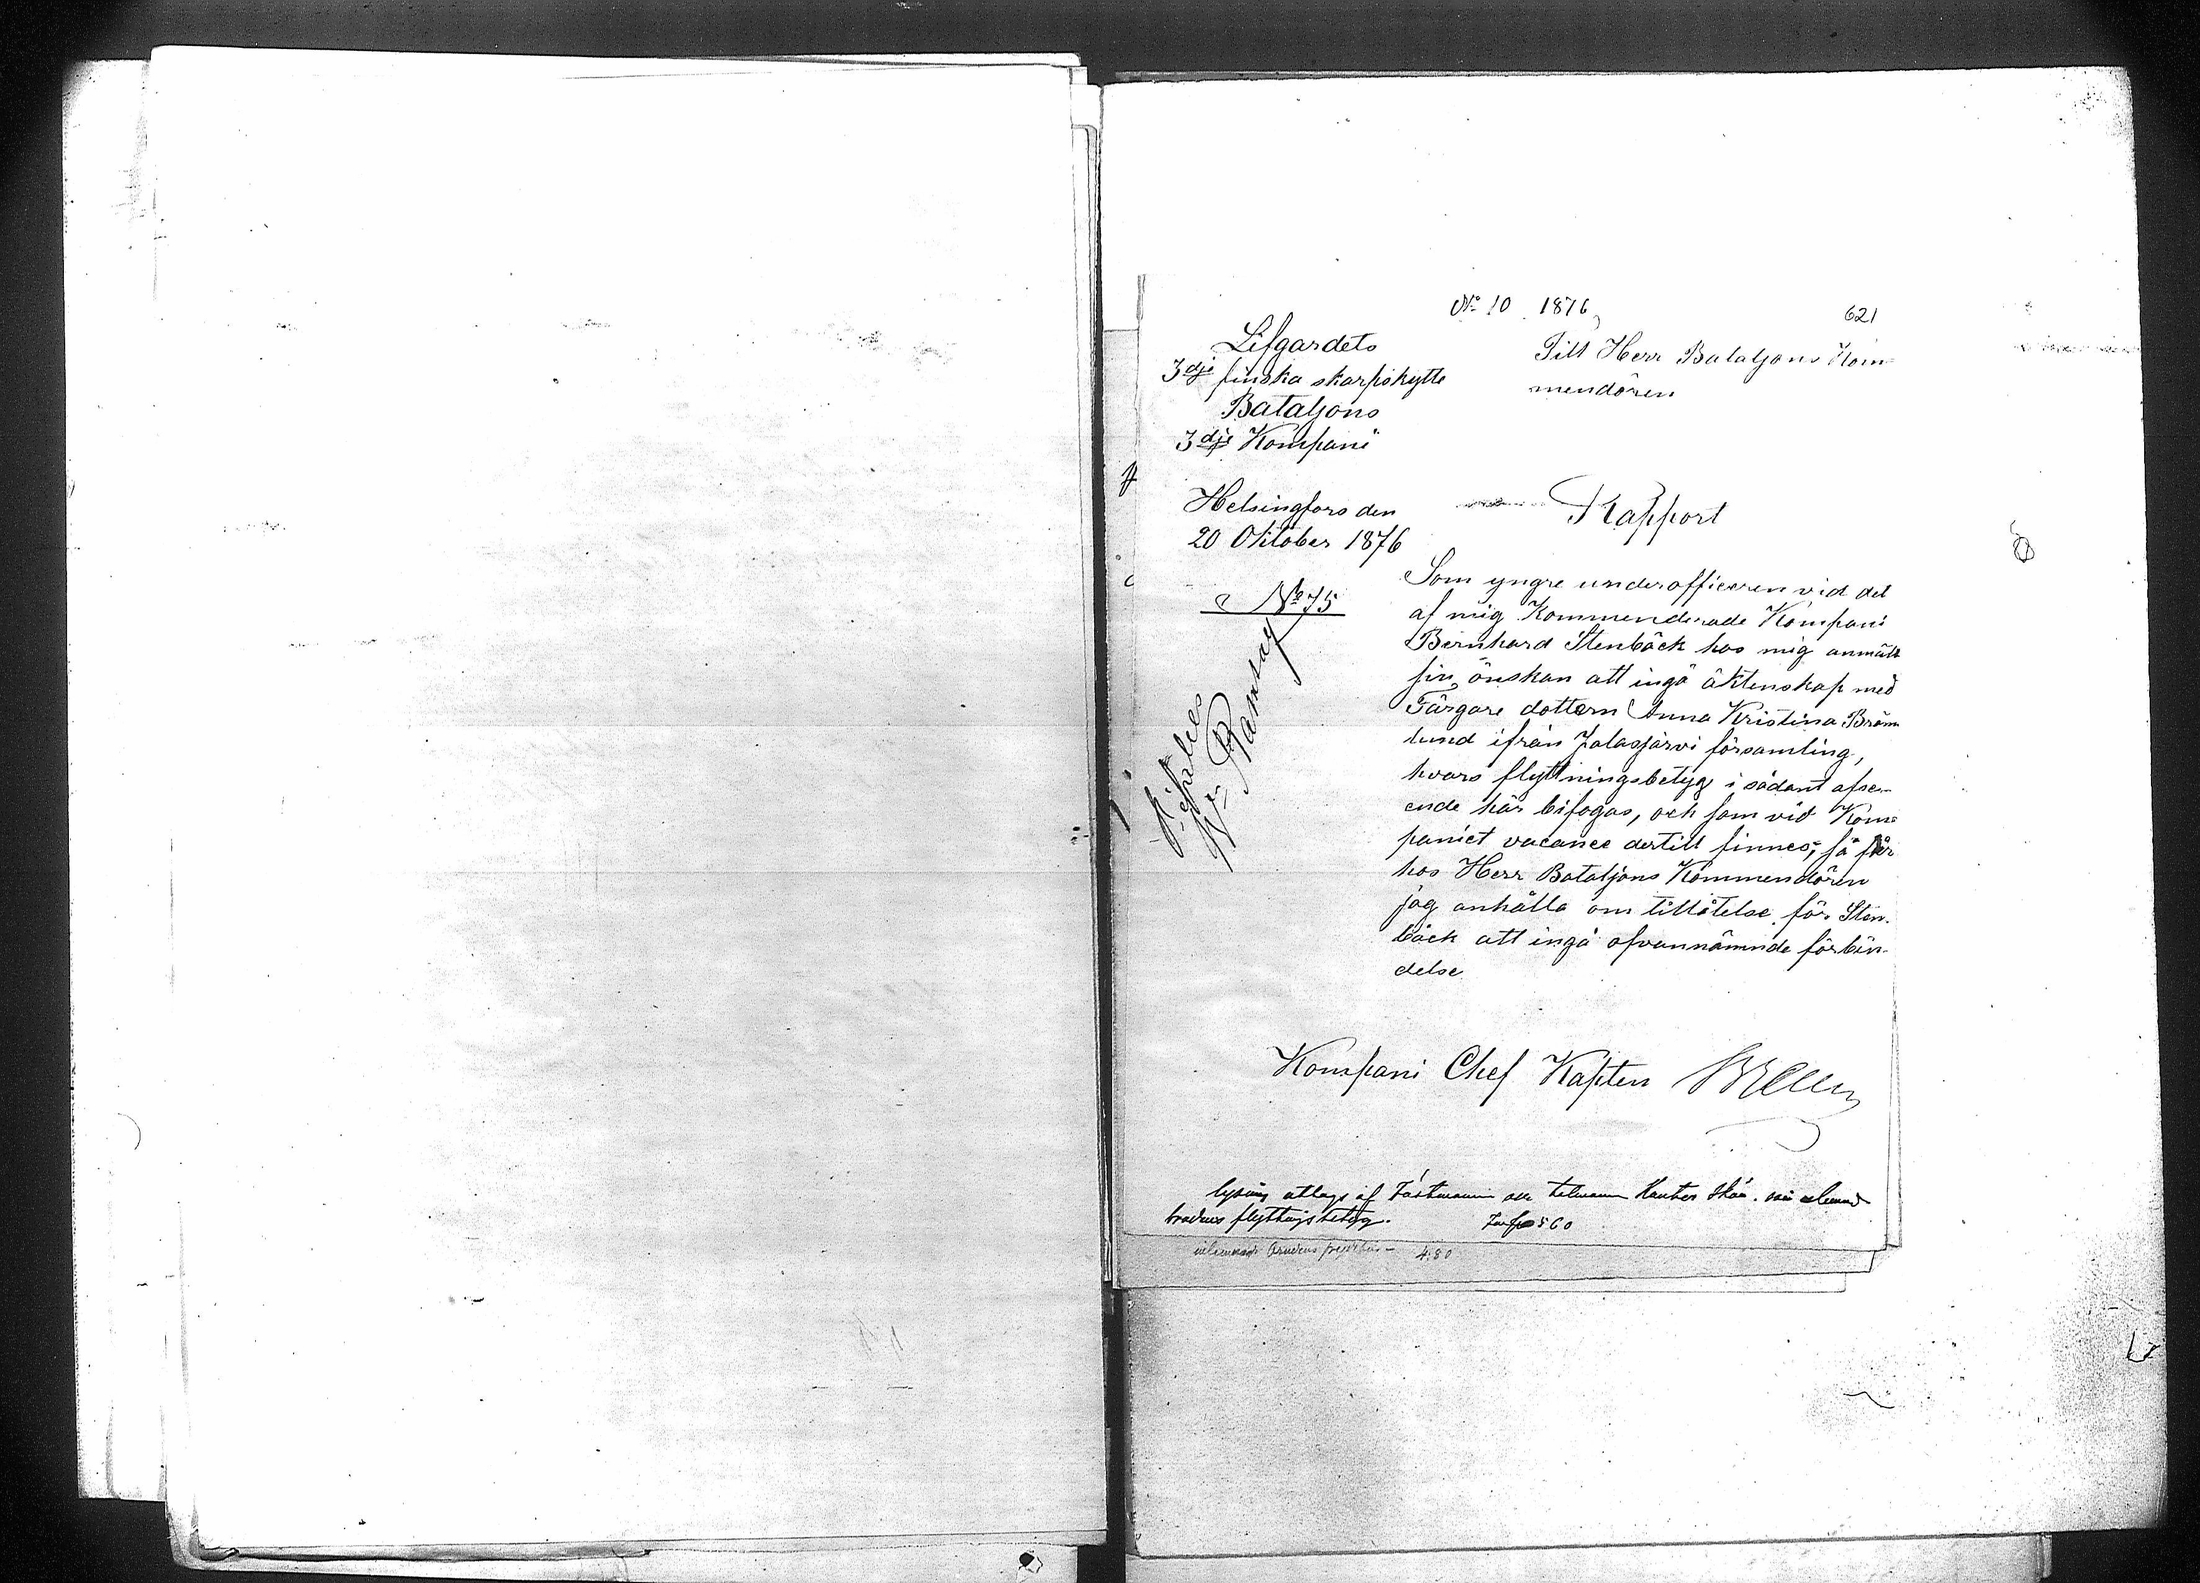 No 10 1876
621
Lifgardets
3dje finska skarpskytte
Bataljons
3dje Kompani
Helsingfors den
20 Oktober 1876
No 75
Till Herr Bataljons Kom-
mendören
Rapport
Som yngre underofficeren vid det
af mig Kommenderade Kompani
Bernhard Stenbäck hos mig anmält
sin önskan att ingå äktenskap med
Färgare dottern Anna Kristina Bröm
lund ifrån Jalasjärvi församling,
hvars flyttningsbetyg i sådant afse-
ende här bifogas, och som vid Kom-
paniet vacance dertill finnes; så får
hos Herr Bataljons Kommendören
jag anhålla om tillåtelse för Sten-
bäck att ingå ofvannämnde förbin-
delse
Ramsay
Kompani Chef Kapten
lysning uttags af
brudens flyttnings betyg. 560
brudens 4.80